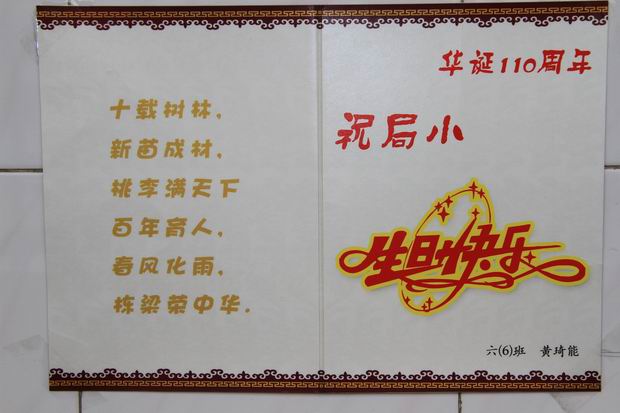 十载树林，
新苗成材，
桃李满天下
百年育人，
春风化雨，
栋梁荣中华.
华诞110周年
祝局小
生日快乐
六(6)班 黄琦能